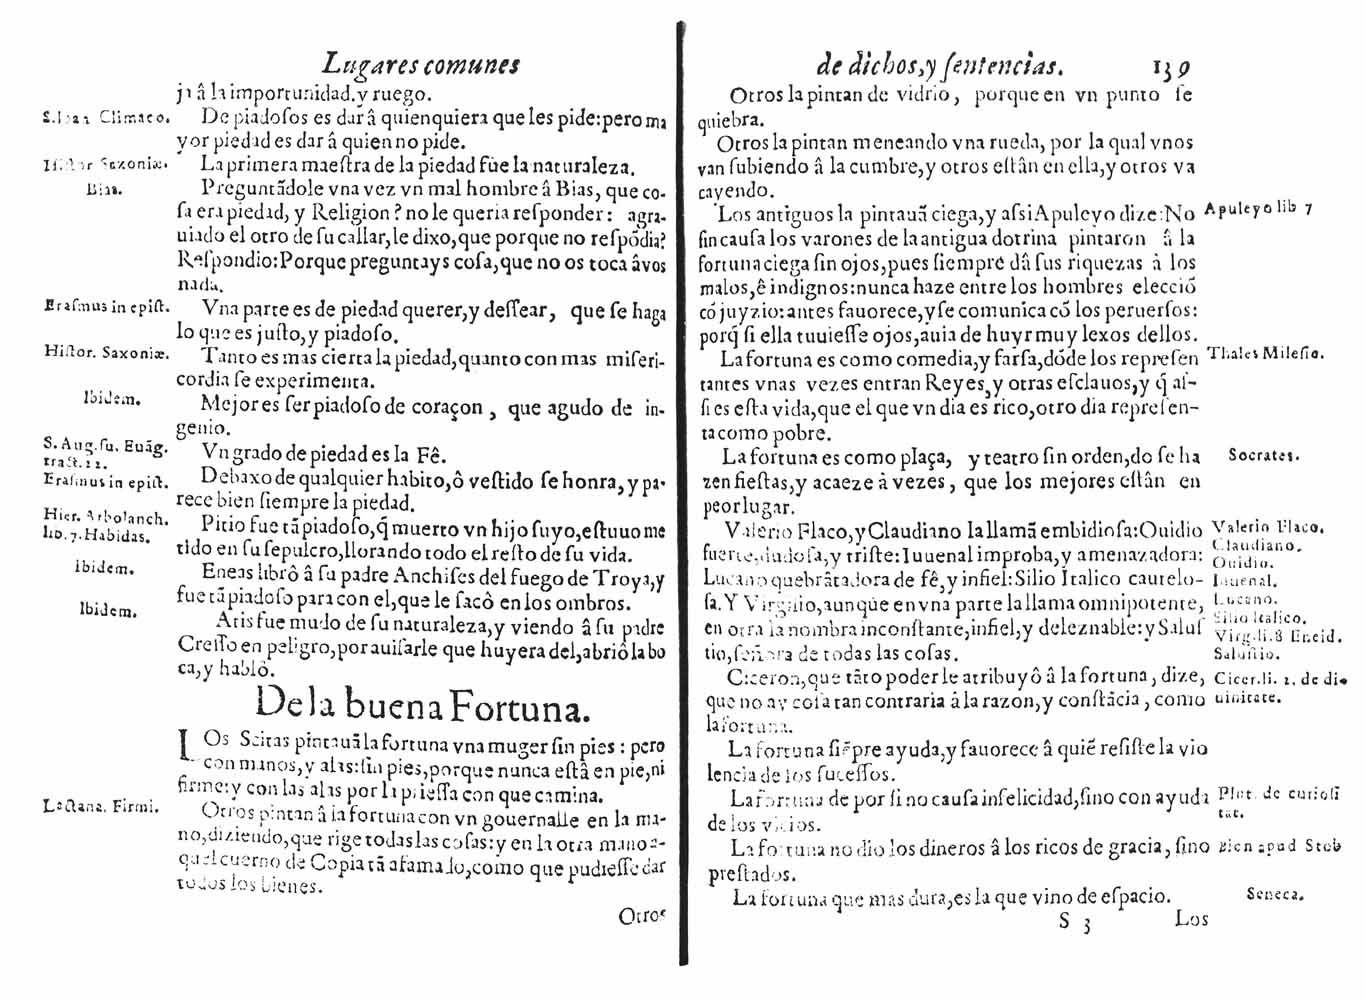 Lugares comunes
jı â la importunidad, y ruego.
S. Iuan Climaco. De piadosos es dar â quienquiera que les pide: pero ma
yor piedad es dar â quien no pide.
Histor Saxoniæ. La primera maestra de la piedad fue la naturaleza.
Bias. Preguntãdole vna vez vn mal hombre â Bias, que co-
sa era piedad, y Religion? no le queria responder: agra-
uiado el otro de su callar, le dixo, que porque no respõdia?
Respondio: Porque preguntays cosa, que no os toca âvos
nada.
Erasmus in epist. Vna parte es de piedad querer, y dessear, que se haga
lo que es justo, y piadoso.
Histor. Saxoniæ. Tanto es mas cierta la piedad, quanto con mas miseri-
cordia se experimenta.
Ibidem. Mejor es ser piadoso de coraçon, que agudo de in-
genio.
S. Aug. su. Euãg. Vn grado de piedad es la Fê.
tract. 22.
Erasmus in epist. Debaxo de qualquier habito, ô vestido se honra, y pa-
rece bien siempre la piedad.
Hier. Arbolanch. Pirio fue tã piadoso, q̃ muerto vn hijo suyo, estuuo me
lib. 7. Habidas. tido en su sepulcro, llorando todo el resto de su vida.
Ibidem. Eneas librô â su padre Anchises del fuego de Troya, y
fue tã piadoso para con el, que le sacô en los ombros.
Ibidem. Atis fue mudo de su naturaleza, y viendo â su padre
Cresso en peligro, por auisarle que huyera del, abriô la bo
ca, y hablô.
De la buena Fortuna.
LOs Scitas pintauã la fortuna vna muger sin pies: pero
con manos, y alas: sin pies, porque nunca estâ en pie, ni
firme: y con las alas por la priessa con que camina.
Lactana. Firmi. Otros pintan â la fortuna con vn gouernalle en la ma-
no, diziendo, que rige todas las cosas: y en la otra mano a-
quel cuerno de Copia tã afamado, como que pudiesse dar
todos los bienes.
Otros
de dichos, y sentencias. 139
Otros la pintan de vidrio, porque en vn punto se
quiebra.
Otros la pintan meneando vna rueda, por la qual vnos
van subiendo â la cumbre, y otros estân en ella, y otros va
cayendo.
Los antiguos la pintauã ciega, y assi Apuleyo dize: No Apuleyo lib 7
sin causa los varones de la antigua dotrina pintaron â la
fortuna ciega sin ojos, pues siempre dâ sus riquezas à los
malos, ê indignos: nunca haze entre los hombres elecciõ
cõ juyzio: antes fauorece, y se comunica cõ los peruersos:
porq̃ si ella tuuiesse ojos, auia de huyr muy lexos dellos.
La fortuna es como comedia, y farsa, dõde los represen Thales Milesio.
tantes vnas vezes entran Reyes, y otras esclauos, y q̃ as-
si es esta vida, que el que vn dia es rico, otro dia represen-
ta como pobre.
La fortuna es como plaça, y teatro sin orden, do se ha Socrates.
zen fiestas, y acaeze à vezes, que los mejores estân en
peor lugar.
Valerio Flaco, y Claudiano la llamã embidiosa: Ouidio Valerio Flaco.
Claudiano.
fuerte, dudosa, y triste: Iuuenal improba, y amenazadora: Ouidio.
Lucano quebrãtadora de fê, y infiel: Silio Italico cautelo- Iuuenal.
sa. Y Virgilio, aunque en vna parte la llama omnipotente, Lucano.
Silio Italico.
en otra la nombra inconstante, infiel, y deleznable: y Salus Virg. li. 8 Eneid.
tio, señora de todas las cosas. Salustio.
Ciceron, que tãto poder le atribuyô â la fortuna, dize, Cicer. li. 2. de di-
que no ay cosa tan contraria â la razon, y constãcia, como uinitate.
la fortuna.
La fortuna siẽpre ayuda, y fauorece â quiẽ resiste la vio
lencia de los sucessos.
La fortuna de por si no causa infelicidad, sino con ayuda Plut. de curiosi
de los vicios. tat.
La fortuna no dio los dineros â los ricos de gracia, sino Bien apud Stob
prestados.
La fortuna que mas dura, es la que vino de espacio. Seneca.
S 3 Los